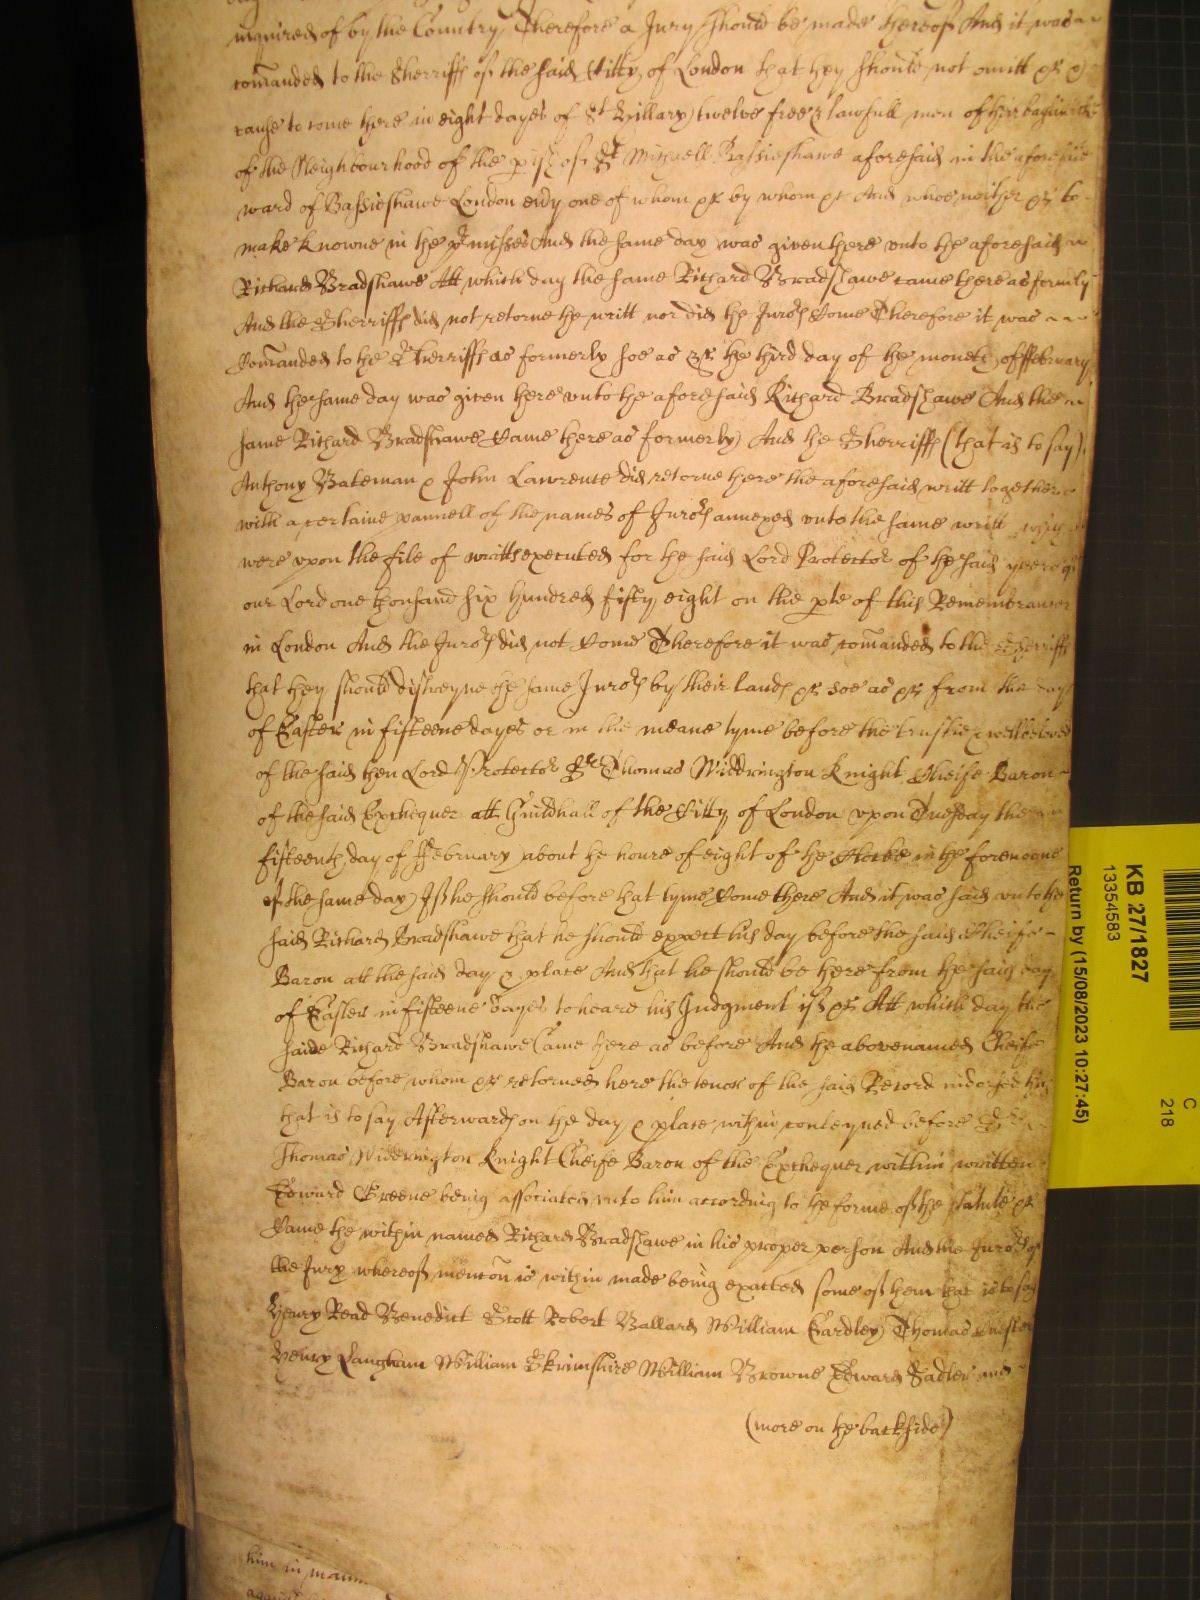 inquired of by the Country Therefore a Jury should be made hereof And it was
comanded to the Sherriffs of the said Citty of London that they should not omitt &c
cause to come there in eight dayes of St Hillary twelve free & lawfull men of their
of the Neighbourhood of the pish of St Michaell Bassieshawe aforesaid in the aforesaid
ward of Bassieshawe London evry one of whom &c by whom &c And whoe neither &c to
make knowne in the pmisses And the same day was given there unto the aforesaid
Richard Bradshawe Att which day the same Richard Bradshawe came there as formerly
And the Sherriffs did not retorne the writt nor did the Jurors Come Therefore it was
Comanded to the Sherriffs as formerly soe as &c the third day of the moneth of ffebruary
And the same day was given here unto the aforesaid Richard Bradshawe And the
same Richard Bradshawe Came there as formerly And the Sherriffs (that is to say)
Anthony Bateman & John Lawrence did retorne here the aforesaid writt together
with a certaine pannell of the names of Jurors annexed unto the same writt which
were upon the file of writts executed for the said Lord Protector of the said yeere of
our Lord one thousand six hundred fifty eight on the pte of this Remembrancer
in London And the Jurors did not Come Therefore it was comanded to the Sherriffs
that they should distreyne the same Jurors by their lands &c soe as &c from the day
of Easter in fifteene dayes or in the meane tyme before the trustie & welbeloved
of the said then Lord Protector Sr Thomas Widdrington Knight Cheife Baron
of the said Exchequer att Guildhall of the Citty of London upon Tuesday the
fifteenth day of ffebruary about the houre of eight of the Clocke in the forenoone
of the same day If he should before that tyme Come there And it was said unto the
said Richard Bradshawe that he should expect his day before the said Cheife
Baron att the said day & place And that he should be here from the said day
of Easter in fifteene dayes to heare his Judgment if &c Att which day the
saide Richard Bradshawe Came here as before And the abovenamed Cheife
Baron before whom &c retorned here the tenor of the said Record indorsed thus
that is to say Afterwards on the day & place within conteyned before Sr
Thomas Widdrington Knight Cheife Baron of the Exchequer within written
Edward Greene being associated unto him according to the forme of the Statute &c
Came the within named Richard Bradshawe in his proper person And the Jurors of
the Jury whereof mencon is within made being exacted some of them that is to say
Henry Read Benedict Scott Robert Ballard William Eardley Thomas
Henry Langham William Skrimshire William Browne Edward Sadler and
(more on the backside)
him in mann
KB 27/1827
13354583
Return by (15/08/2023 10:27:45)
C
218